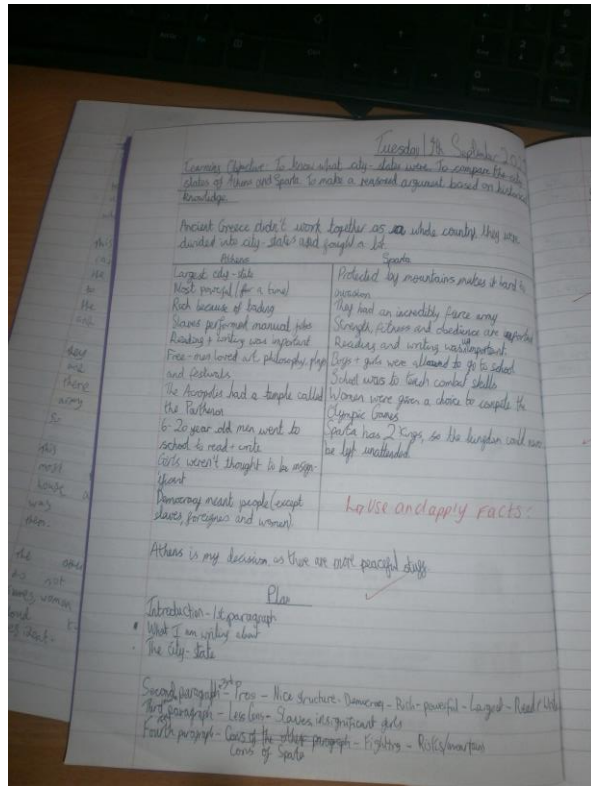 Tuesday 19th September
Learning Objective: To know what city-states were. To compare the city-
states of Athens and Sparta. To make a reasoned argument based on historical
knowledge.
Ancient Greece didn't work together as a whole country, they were
divided into city-states and fought a lot.
Athens
Largest city-state
Most powerful (for a time)
Rich because of trading
Slaves performed manual jobs
Reading + writing was important
Free-men loved art, philosophy, plays
and festivals
The Acropolis had a temple called
the Parthenon
6-20 year old men went to
school to read + write
Girls weren't thought to be insign-
ificant
Democracy meant people (except
slaves, foreigners and women)
Sparta
Protected by mountains makes it hard to
invasion
They had an incredibly fierce army
Strength, fitness and obedience are important
Reading and writing was important
Boys + girls were allowed to go to school
School was to teach combat skills
Women were given a choice to compete the
Olympic Games
Sparta has 2 Kings, so the kingdom could never
be left unattended
↳ use and apply facts.
Athens is my decision, as there are more peaceful stuff
Plan
Introduction - 1st paragraph
• What I am writing about
• The city-state
Second paragraph - Pros - Nice structure - Democracy - Rich - powerful - Largest - Read/Write
Third paragraph - Less Cons - Slaves, insignificant girls
Fourth paragraph - Cons of the other paragraph - Fighting -
Cons of Sparta
this
the
the
they
are
there
army
So
this
most
house
was
the other
not
women